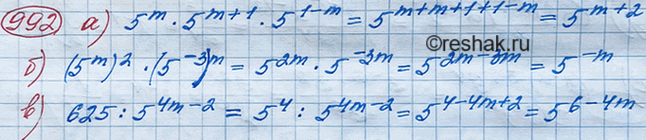 992 а) 5^m · 5^{m+1} · 5^{1-m} = 5^{m+m+1+1-m} = 5^{m+2}
©reshak.ru
б) (5^m)^2 · (5^{-3})^m = 5^{2m} · 5^{-3m} = 5^{2m-3m} = 5^{-m}
в) 625 : 5^{4m-2} = 5^4 : 5^{4m-2} = 5^{4-4m+2} = 5^{6-4m}